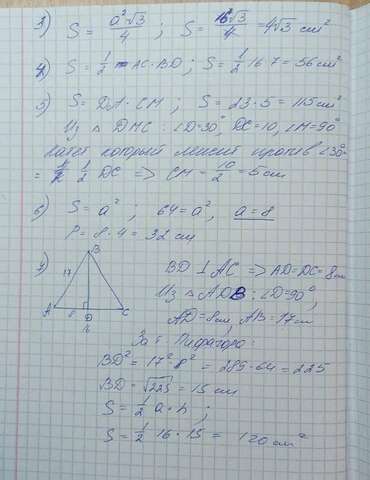 3) S = a²√3/4 ; S = 16√3/4 = 4√3 cm²
4) S = 1/2 AC·BD; S = 1/2 16·7 = 56 cm²
5) S = DA·CM ; S = 23·5 = 115 cm²
Из △ DMC: ∠D=30°, DC=10, ∠M=90°
катет который лежит против ∠30°
= 1/2 DC => CM = 10/2 = 5 cm
6) S = a² ; 64 = a², a = 8
P = 8·4 = 32 см
7)
B
17
A
8
D
C
BD ⊥ AC => AD=DC=8см
Из △ADB: ∠D=90°,
AD=8см, AB=17см
За т. Пифагора:
BD² = 17²-8² = 289-64 = 225
BD = √225 = 15 см
S = 1/2 a·h ;
S = 1/2 16·15 = 120 см²